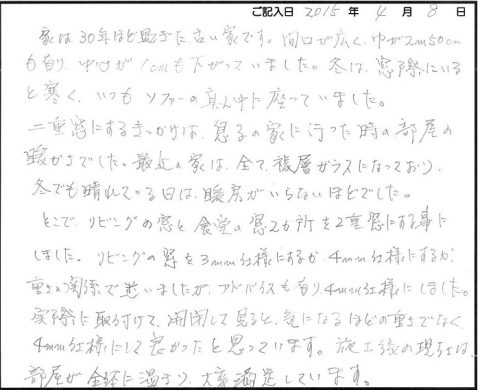 ご記入日 2015 年 4 月 8 日
家は30年ほど過ぎた古い家です。間口が広く、巾が2m50cm
も有り、中心が1cmも下がっていました。冬は、窓際にいる
と寒く、いつもソファーの真ん中に座っていました。
二重窓にするきっかけは、息子の家に行った時の部屋の
暖かさでした。最近の家は、全て、複層ガラスになっており、
冬でも晴れている日は、暖房がいらないほどでした。
そこで、リビングの窓と食堂の窓2か所を2重窓にする事に
しました。リビングの窓を3mm仕様にするか、4mm仕様にするか、
重さの関係で迷いましたが、アドバイスも有り、4mm仕様にしました。
実際に取付けて、開閉して見ると、気になるほどの重さでなく、
4mm仕様にして良かったと思っています。施工後の現在は、
部屋が全体に温まり、大変満足しています。